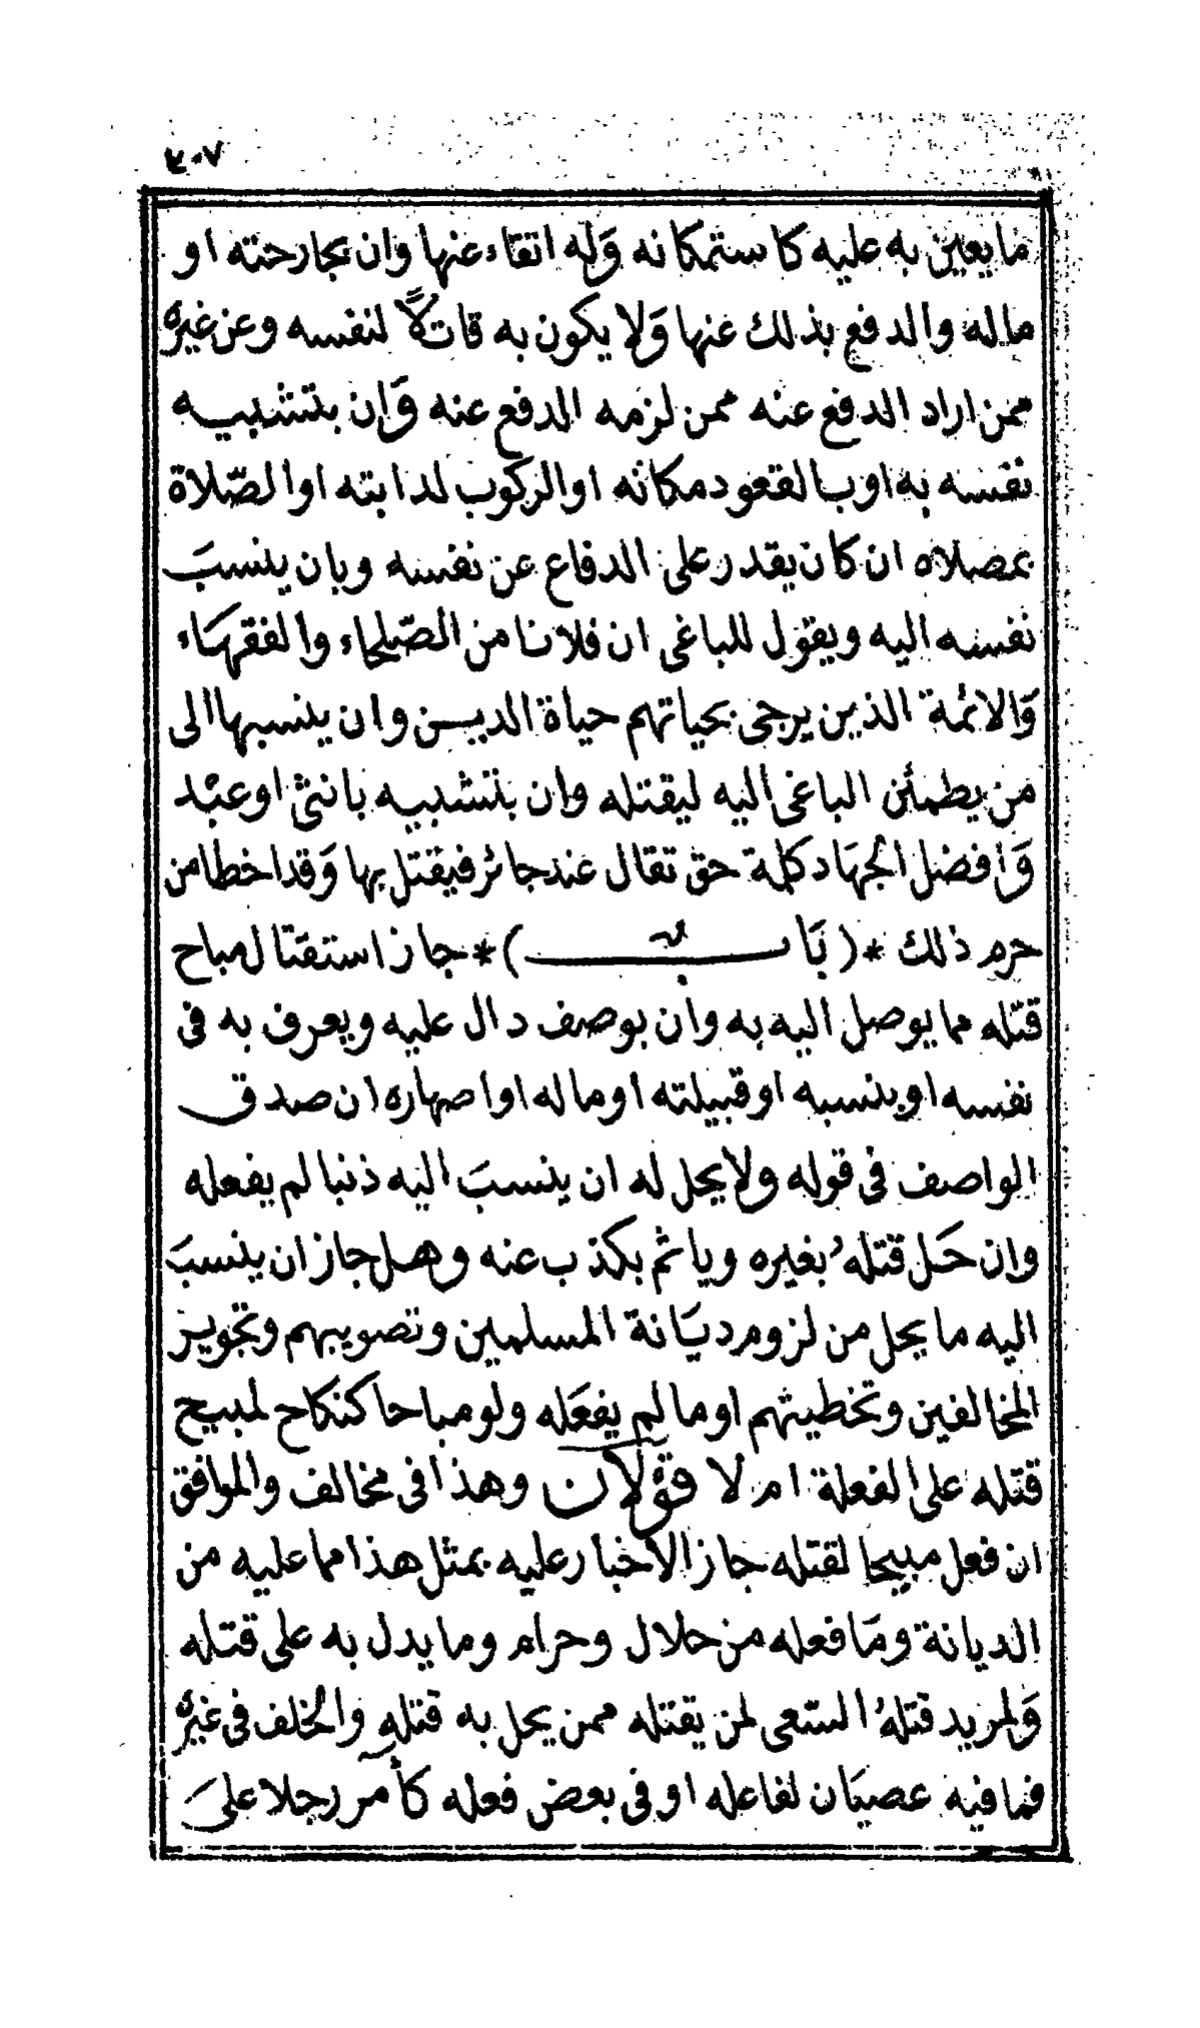 ٧٠٤
ما يعين به عليه كاستمكانه وَله اتقاء عنها وان بجارحته او
ماله والدفع بذلك عنها وَلا يكون به قاتلًا لنفسه وعن غيره
ممن اراد الدفع عنه ممن لزمه الدفع عنه وَان بتشبيه
نفسه به او بالقعود مكانه او الركوب لدابته او الصّلاة
بمصلاه ان كان يقدر على الدفاع عن نفسه وبان ينسبَ
نفسه اليه ويقول للباغى ان فلانا من الصّلحاء والفقهَاء
وَالائمة الذين يرجى بحياتهم حياة الديــن وان ينسبها الى
من يطمئن الباغى اليه ليقتله وان بتشبيه بانثى او عبْد
وَافضل الجهَاد كلمة حق تقال عند جائر فيقتل بها وَقد اخطا من
حرم ذلك *(بَابــــــ)* جاز استقتال مباح
قتله مما يوصل اليه به وان بوصف دال عليه ويعرف به فى
نفسه او بنسبه او قبيلته او ماله او اصهاره ان صدق
الواصف فى قوله ولا يحل له ان ينسبَ اليه ذنبا لم يفعله
وان حَل قتلهُ بغيره وياثم بكذب عنه وهــل جاز ان ينسبَ
اليه ما يحل من لزوم ديَانة المسلمين وتصويبهم وتجوير
المخالفين وتخطيئهم او ما لم يفعَله ولو مباحا كنكاح لمبيح
قتله على الفعلة ام لا قَوْلان وهذا فى مخالف والموافق
ان فعل مبيحا لقتله جاز الاخبار عليه بمثل هذا مما عليه من
الديانة ومَا فعله من حلال وحرام وما يدل به على قتله
وَلمريد قتلهُ السّعى لمن يقتله ممن يحل به قتله والخلف فى غيره
فما فيه عصيَان لفاعله او فى بعض فعله كأمر رجلا علىَ